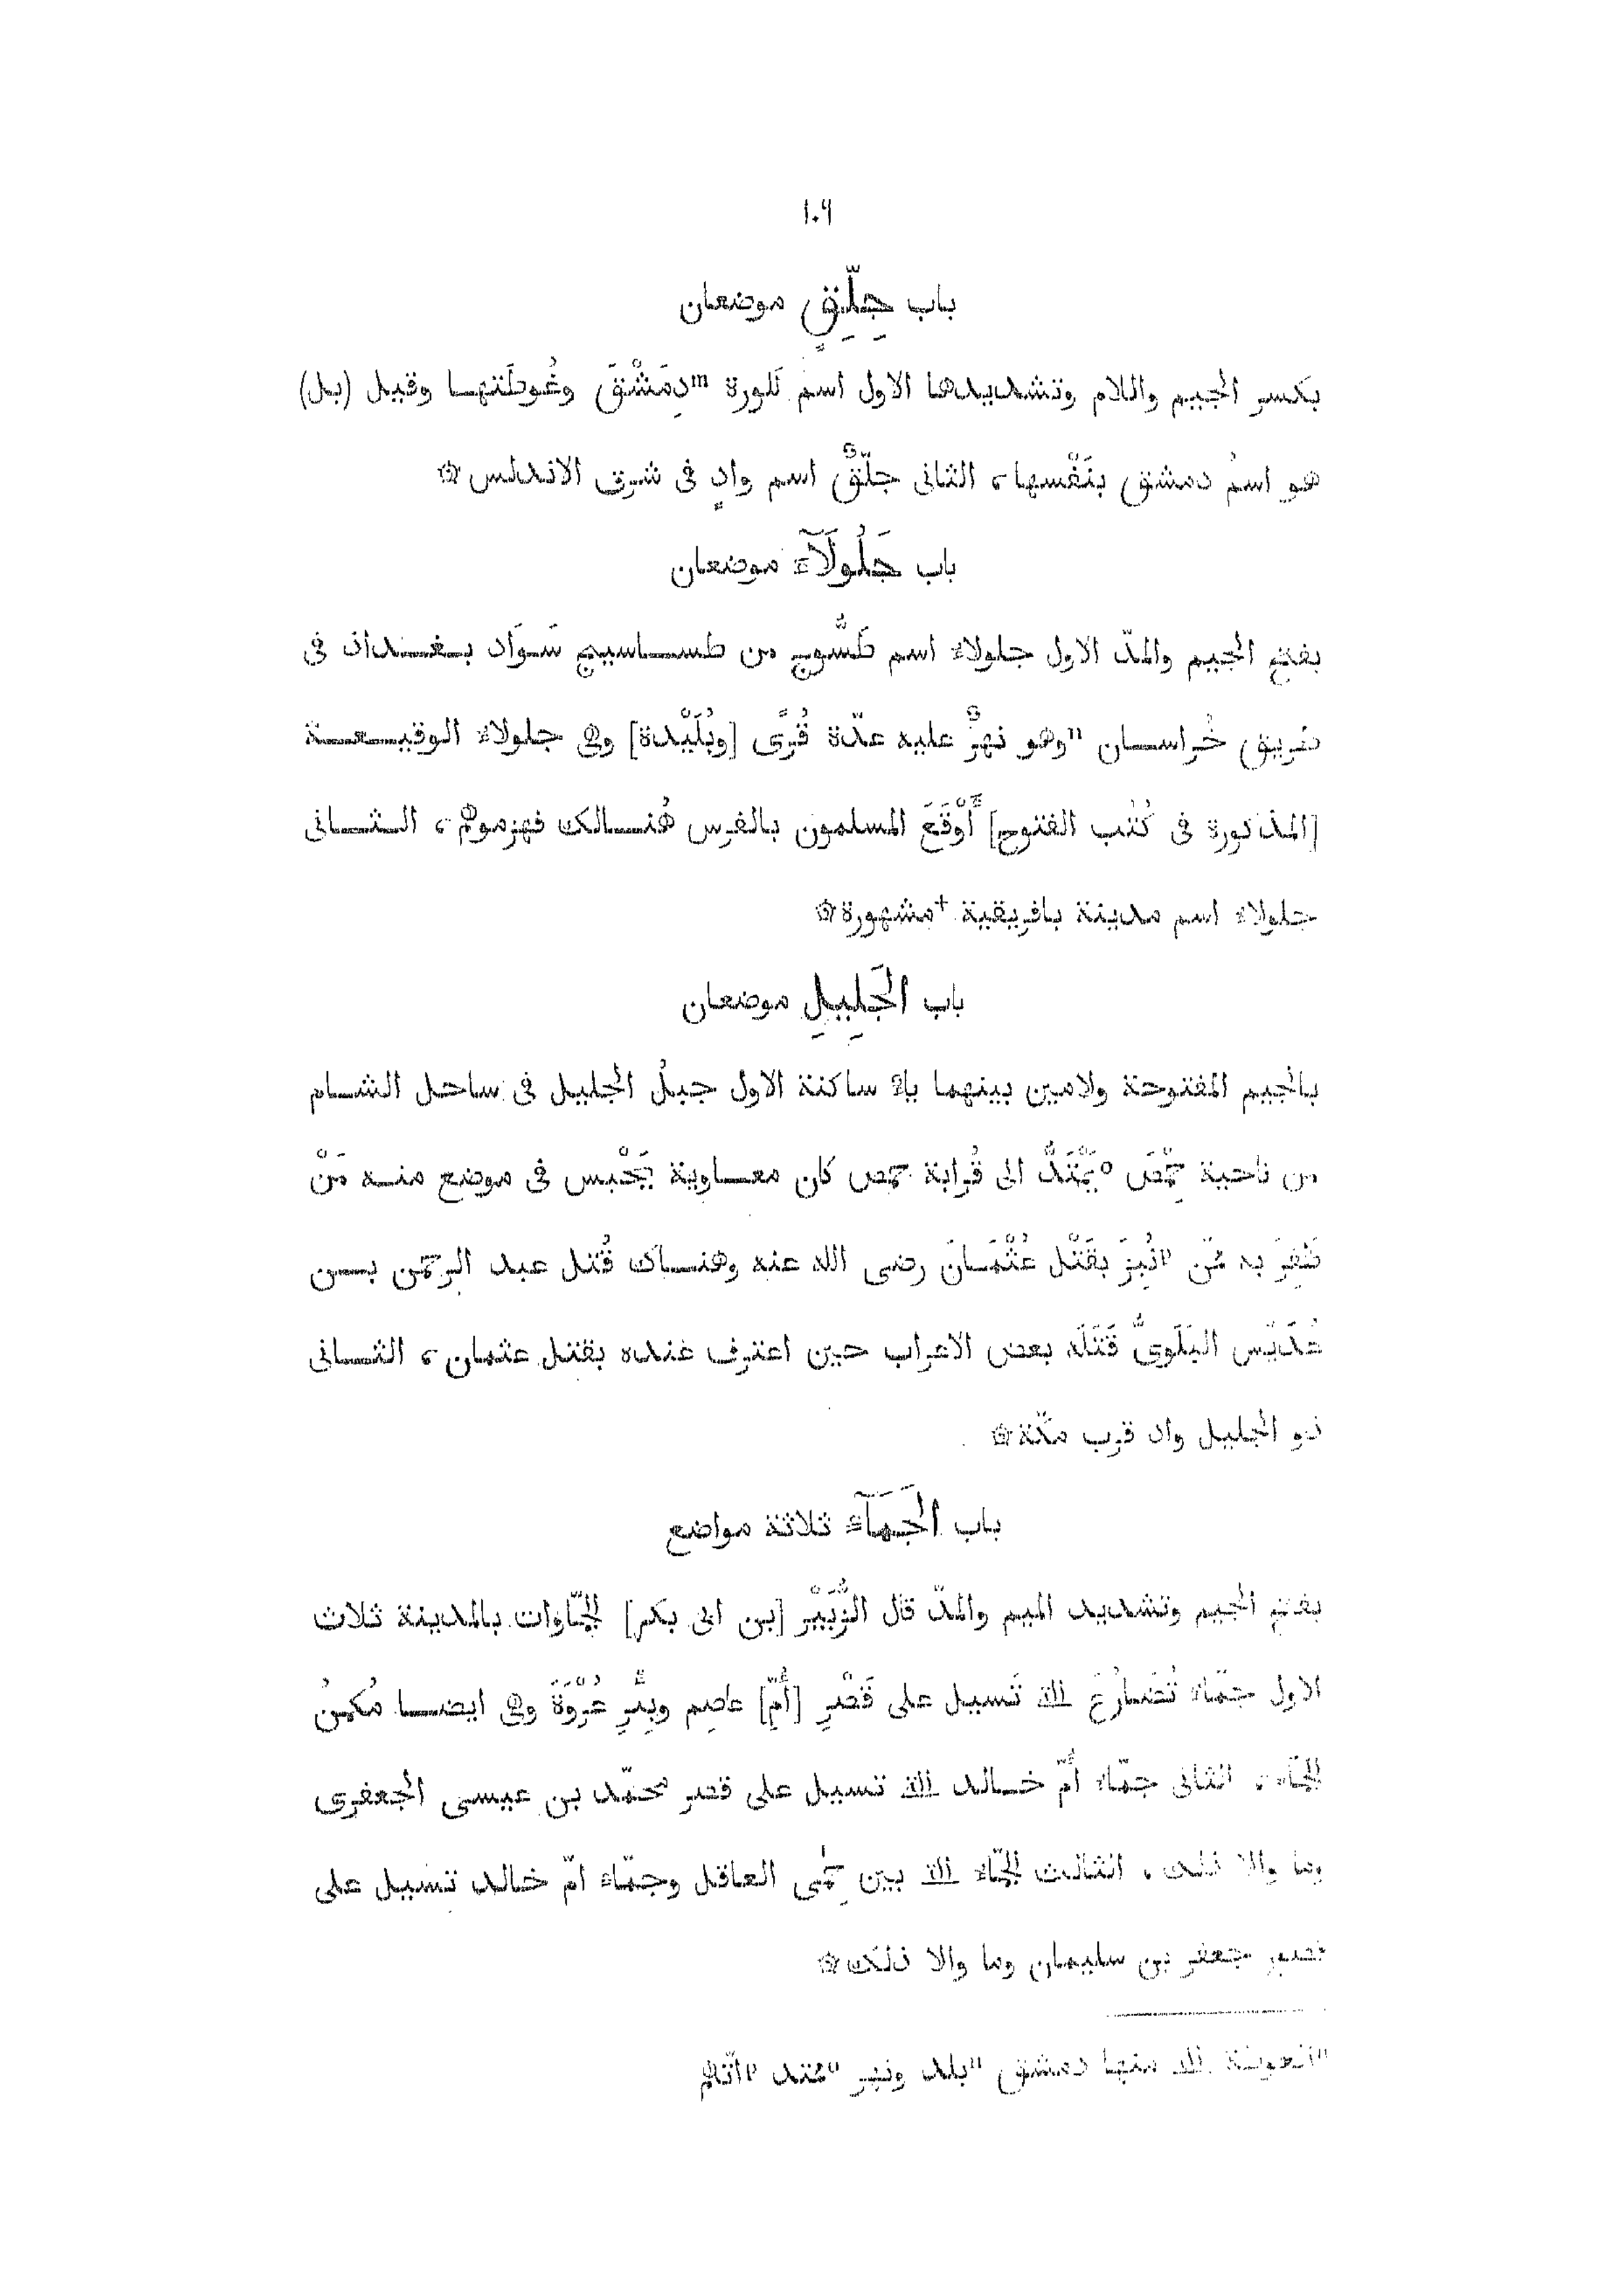 ١٠٦
باب جِلِّقٍ موضعان
بكسر الجيم واللام وتشديدها الاول اسم لكورة ᵐدِمَشْقَ وغُوطَتها وقيل (بل)
هو اسمُ دمشق بنَفْسها، الثانى جلّقُ اسم وادٍ فى شرق الاندلس ۞
باب جَلُولَآءَ موضعان
بفتح الجيم والمدّ الاول جلولاء اسم طَسُّوج من طساسيج سَوَاد بغداد فى
طريق خُراسان ⁿوهو نهرٌ عليه عدّة قُرًى [وبُلَيْدة] وهى جلولاء الوقيعة
[المذكورة فى كُتُب الفتوح] أَوْقَعَ المسلمون بالفرس هُنالك فهزموهم، الثانى
جلولاء اسم مدينة بافريقية +مشهورة ۞
باب الجَلِيلِ موضعان
بالجيم المفتوحة ولامين بينهما ياء ساكنة الاول جبلُ الجليل فى ساحل الشام
من ناحية حِمْصَ ᵒيَمْتَدُّ الى قُرابة حمص كان معاوية يَحْبس فى موضع منه مَنْ
ظَفِرَ به ممّن ᵖنُبِزَ بقَتْل عُثْمَانَ رضى الله عنه وهناك قُتل عبد الرحمن بن
عُدَيْس البَلَوىُّ قَتَلَه بعض الاعراب حين اعترف عنده بقتل عثمان، الثانى
ذو الجليل واد قرب مكّة ۞
باب الجَمَّآءَ ثلاثة مواضع
بفتح الجيم وتشديد الميم والمدّ قال الزُّبَيْر [بن ابى بكر] الجمّاوات بالمدينة ثلاث
الاول جمّاء تُضَارُعَ الّتى تَسيل على قَصْرِ [أُمّ] عاصِم وبِئْرِ عُرْوَةَ وهى ايضا مُكمنُ
الجمّاء، الثانى جمّاء أُمّ خالد الّتى تسيل على قصر محمّد بن عيسى الجعفرى
وما والا ذلك، الثالث الجمّاء الّتى بين حِمَى العاقل وجمّاء امّ خالد تسيل على
قصر جعفر بن سليمان وما والا ذلك ۞
ᵐالغوطة الّتى منها دمشق ⁿبلد ونهر ᵒممتد ᵖاتّهم